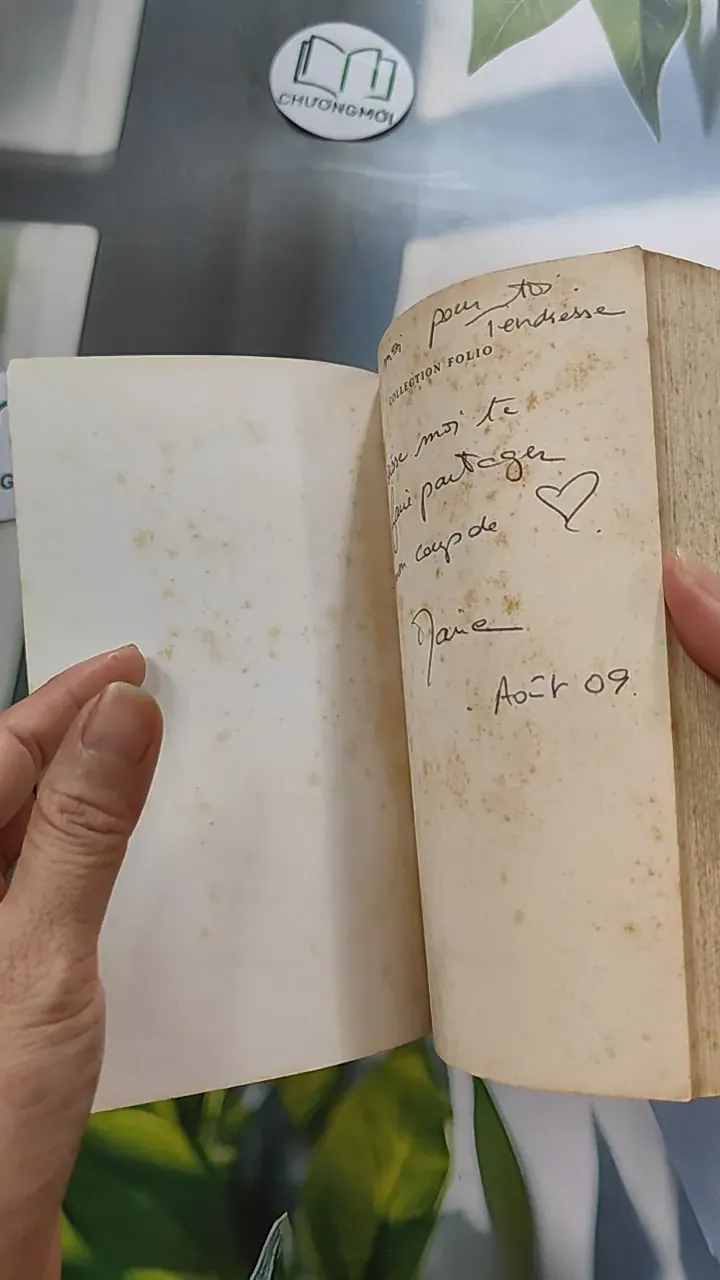 CHƯƠNG MỚI
G
moi pour toi.
Tendresse
COLLECTION FOLIO
moi te
partager
coup de ♡.
Marie
. Août 09.